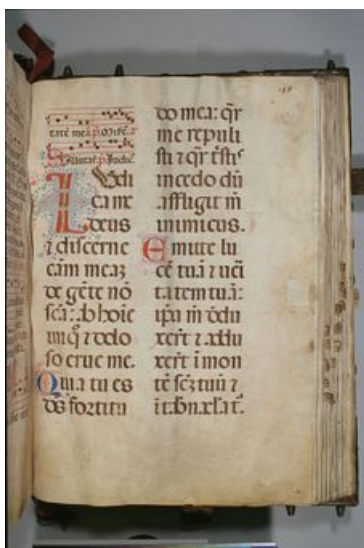 Iudi
ca me
deus
⁊ discerne
cām meaʒ
de gēte nō
scā: ab hoie
iniqͦ ⁊ dolo
so erue me.
Quia tu es
ds̄ fortitu
do mea: qr̄
me repuli
sti ⁊ qr̄
incedo dū
affligit m̄
inimicus.
Emitte lu
cē tuā ⁊ ueri
tatem tuā:
ipā m̄ dedu
xerūt ⁊ addu
xerūt ī mon
tē scʒ tuū ⁊